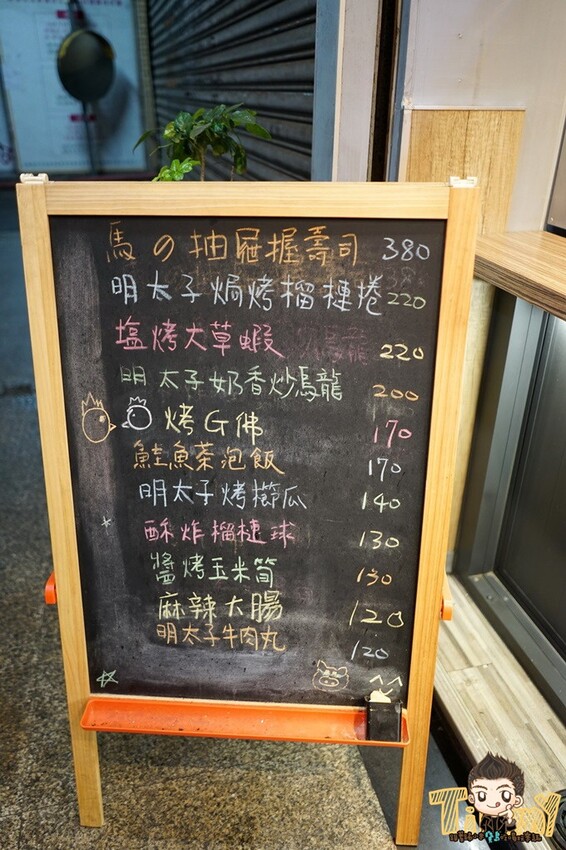 馬の抽屜握壽司 380
明太子焗烤榴槤捲 220
塩烤大草蝦 220
明太子奶香炒烏龍 200
烤G佛 170
鮭魚茶泡飯 170
明太子烤櫛瓜 140
酥炸榴槤球 130
醬烤玉米筍 130
麻辣大腸 120
明太子牛肉丸 120